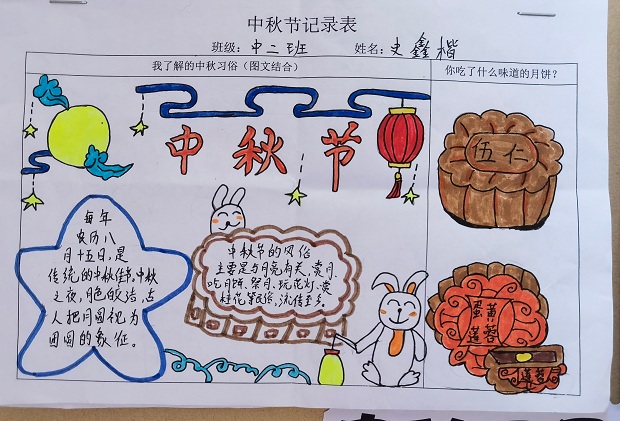 中秋节记录表
班级：中二班 姓名：史鑫楷
我了解的中秋习俗（图文结合）
你吃了什么味道的月饼？
中秋节
每年
农历八
月十五日，是
传统的中秋佳节。中秋
之夜，月色皎洁，古
人把月圆视为
团圆的象征。
中秋节的风俗
主要是与月亮有关，赏月、
吃月饼、祭月、玩花灯、赏
桂花等民俗，流传至今。
五仁
蛋黄
莲蓉